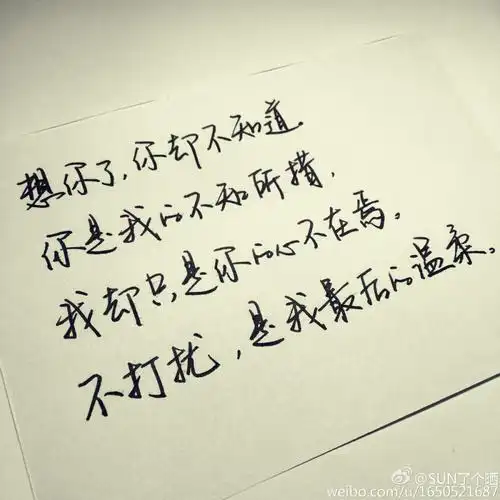 想你了，你却不知道。
你是我的不知所措，
我却只是你的心不在焉。
不打扰，是我最后的温柔。
@SUN了个晒
weibo.com/u/1650521687